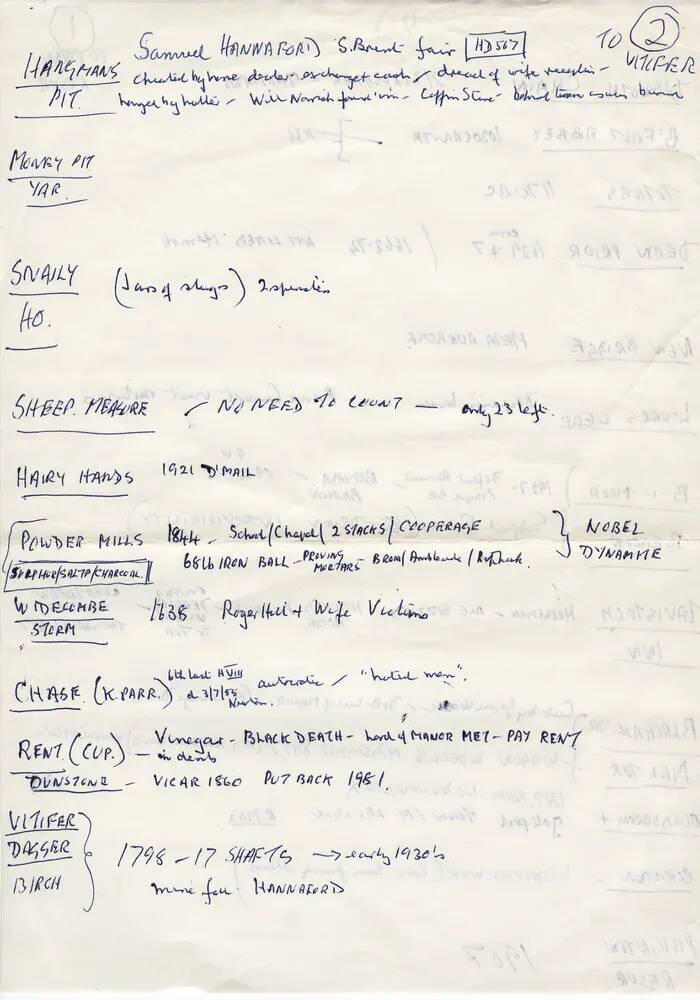 TO ② VITIFER
HANGMANS PIT. Samuel HANNAFORD S. Brent fair HD567
Cheated by horse dealer exchanged cash / dread of wife reception -
hanged by halter - Will Norrish found him - Coffin Stone -
MONEY PIT
YAR.
SNAILY HO. (Jars of slugs) 2 spinsters
SHEEP. MEASURE / NO NEED TO COUNT — only 23 left.
HAIRY HANDS 1921 D'MAIL
POWDER MILLS 1844 - School/Chapel/2 STACKS/COOPERAGE } NOBEL DYNAMITE
SULPHUR/SALTP/CHARCOAL. 68lb IRON BALL - PROVING MORTARS -
WIDECOMBE STORM 1638 Roger Hill + Wife Victims
CHASE. (K. PARR.) 6th last HVIII d 3/7/55 autocratic / "hated man".
RENT. (CUP.) — Vinegar - BLACK DEATH - Lord of MANOR MET - PAY RENT
in dents
DUNSTONE - VICAR 1860 PUT BACK 1981.
VITIFER
DAGGER
BIRCH
1798 - 17 SHAFTS → early 1930's
mine HANNAFORD